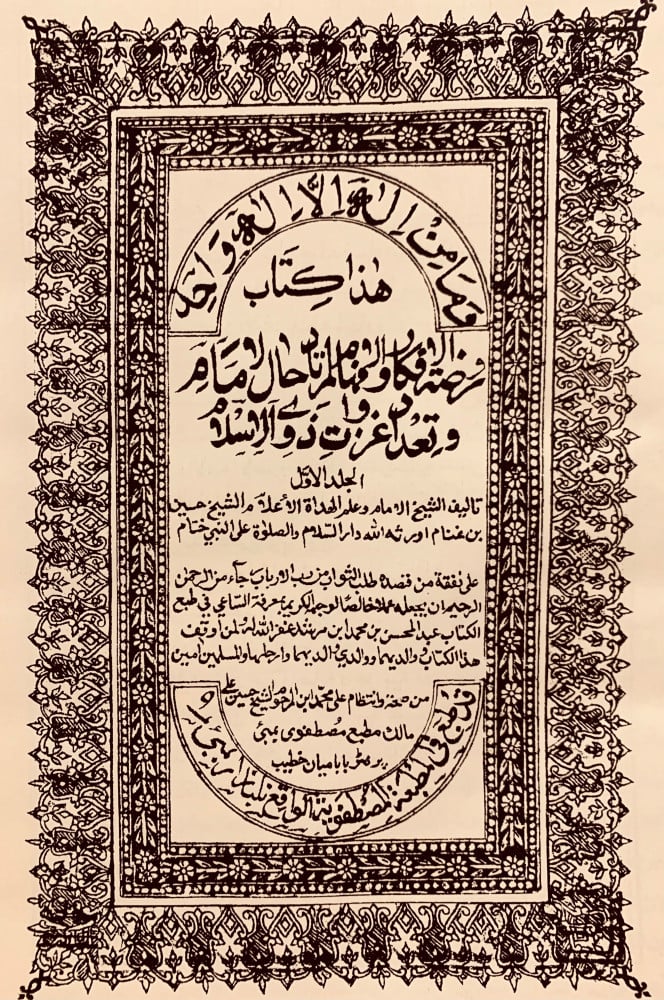 وَمَا مِنْ إِلٰهٍ إِلَّا إِلٰهٌ وَاحِدٌ
هٰذا كِتَاب
روضة الافكار والافهام لمرتاد حال الامام
وتعداد غزوات ذوي الاسلام
الجلد الاوّل
تاليف الشيخ الامام وعلم الهداة الأعلام الشيخ حسين
بن غنام اورثه الله دار السلام والصلوة على النبي ختام
على نفقة من قصده طلب الثواب من رب الارباب رجاء من الرحمن
الرحيم ان يجعله عملا خالصا لوجهه الكريم بمعرفة الساعي في طبع
الكتاب عبد المحسن بن محمد ابن مرشد غفر الله له ولمن اوقف
هذا الكتاب ولوالديهما ووالدي والديهما وارحامهما والمسلمين امين
من صحة وانتظام على محمد ابن المرحوم الشيخ حسين على
مالك مطبع مصطفوى بمبئ
پرنٹر بابا میان خطیب
قد طبع في المطبعة المصطفوية الواقع ببندر بمبئ